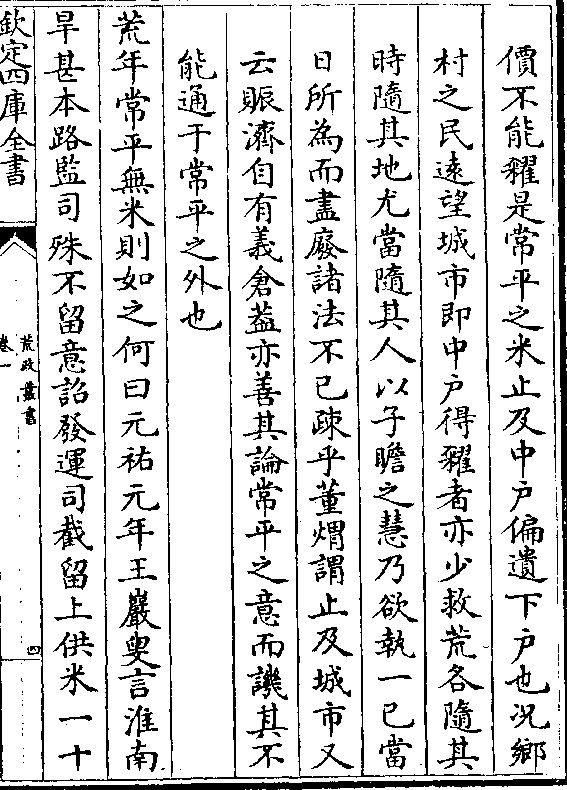 價不能糴是常平之米止及中户偏遺下户也况鄉
村之民遠望城市即中户得糴者亦少救荒各隨其
時隨其地尤當隨其人以子瞻之慧乃欲執一已當
日所為而盡廢諸法不已疎乎董煟謂止及城市又
云賑濟自有義倉葢亦善其論常平之意而譏其不
能通于常平之外也
荒年常平無米則如之何曰元祐元年王巖叟言淮南
旱甚本路監司殊不留意詔發運司截留上供米一十
欽定四庫全書
荒政叢書
卷一
四